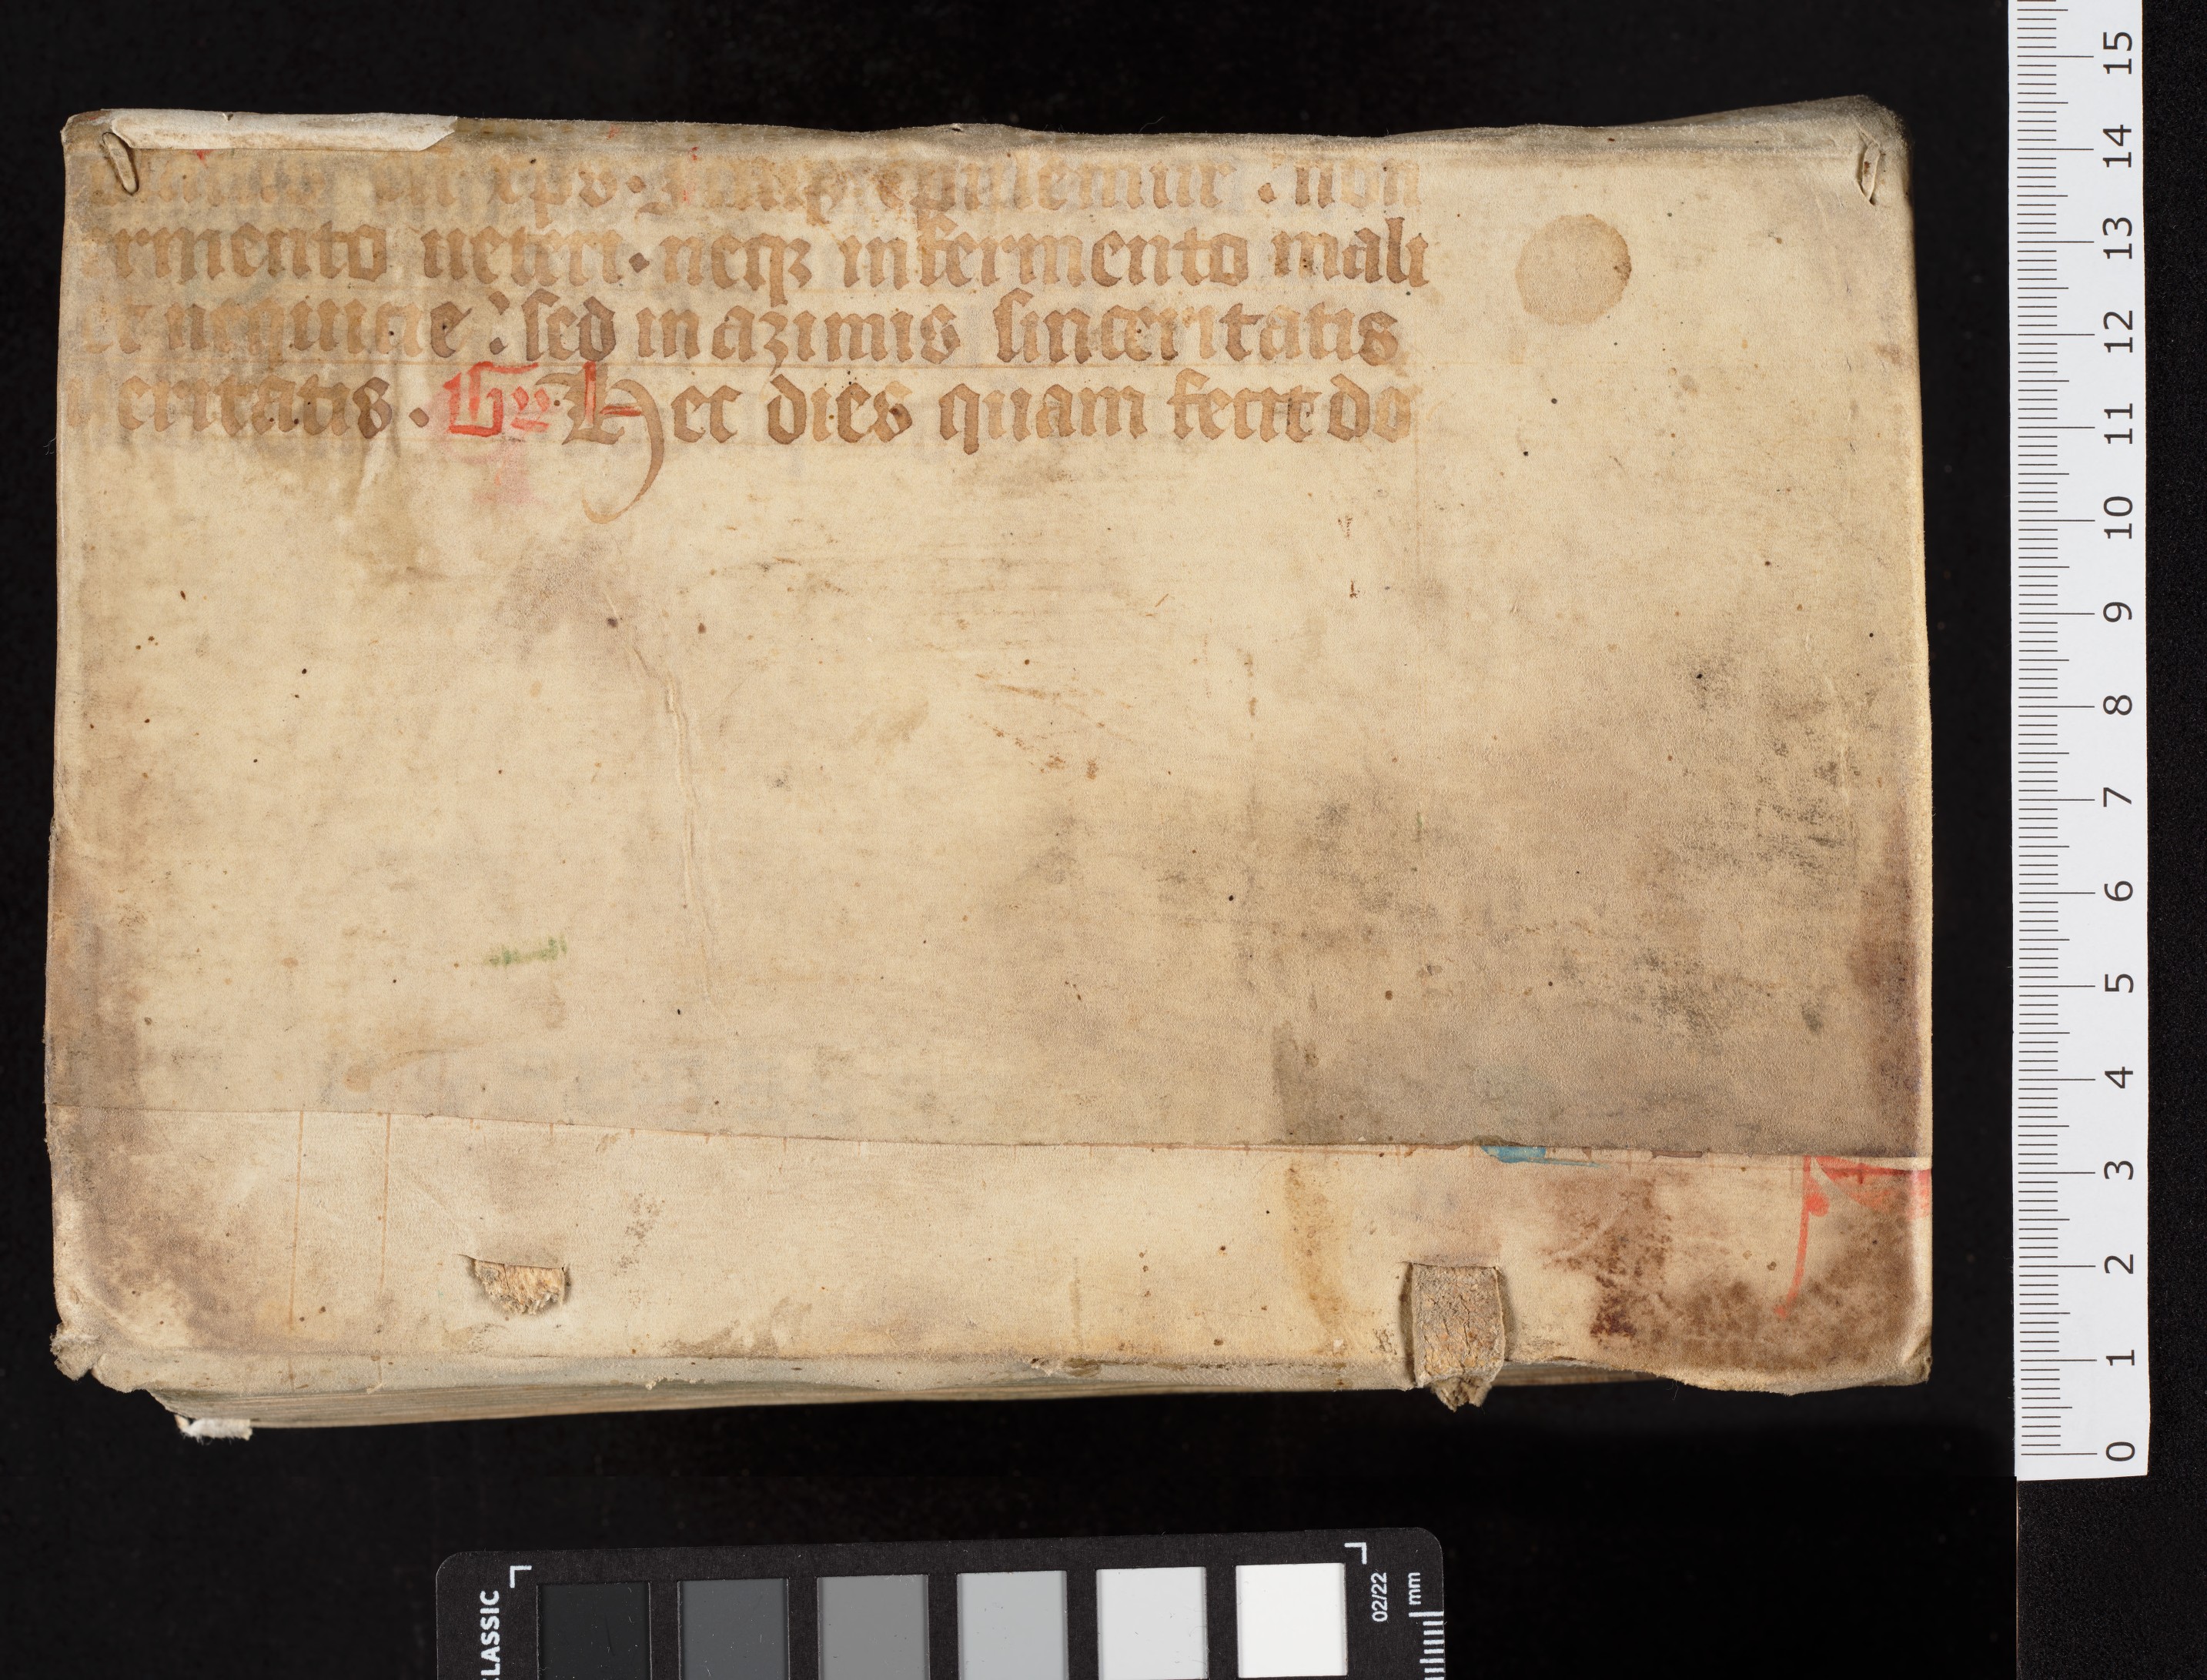 est xpo. Itaqꝫ epulemur . non
ermento ueteri . neqꝫ in fermento mali
et nequicie : sed in azimis sinceritatis
ueritatis . Gͬ Hec dies quam fecit do
15
14
13
12
11
10
9
8
7
6
5
4
3
2
1
0
CLASSIC
02/22
mm